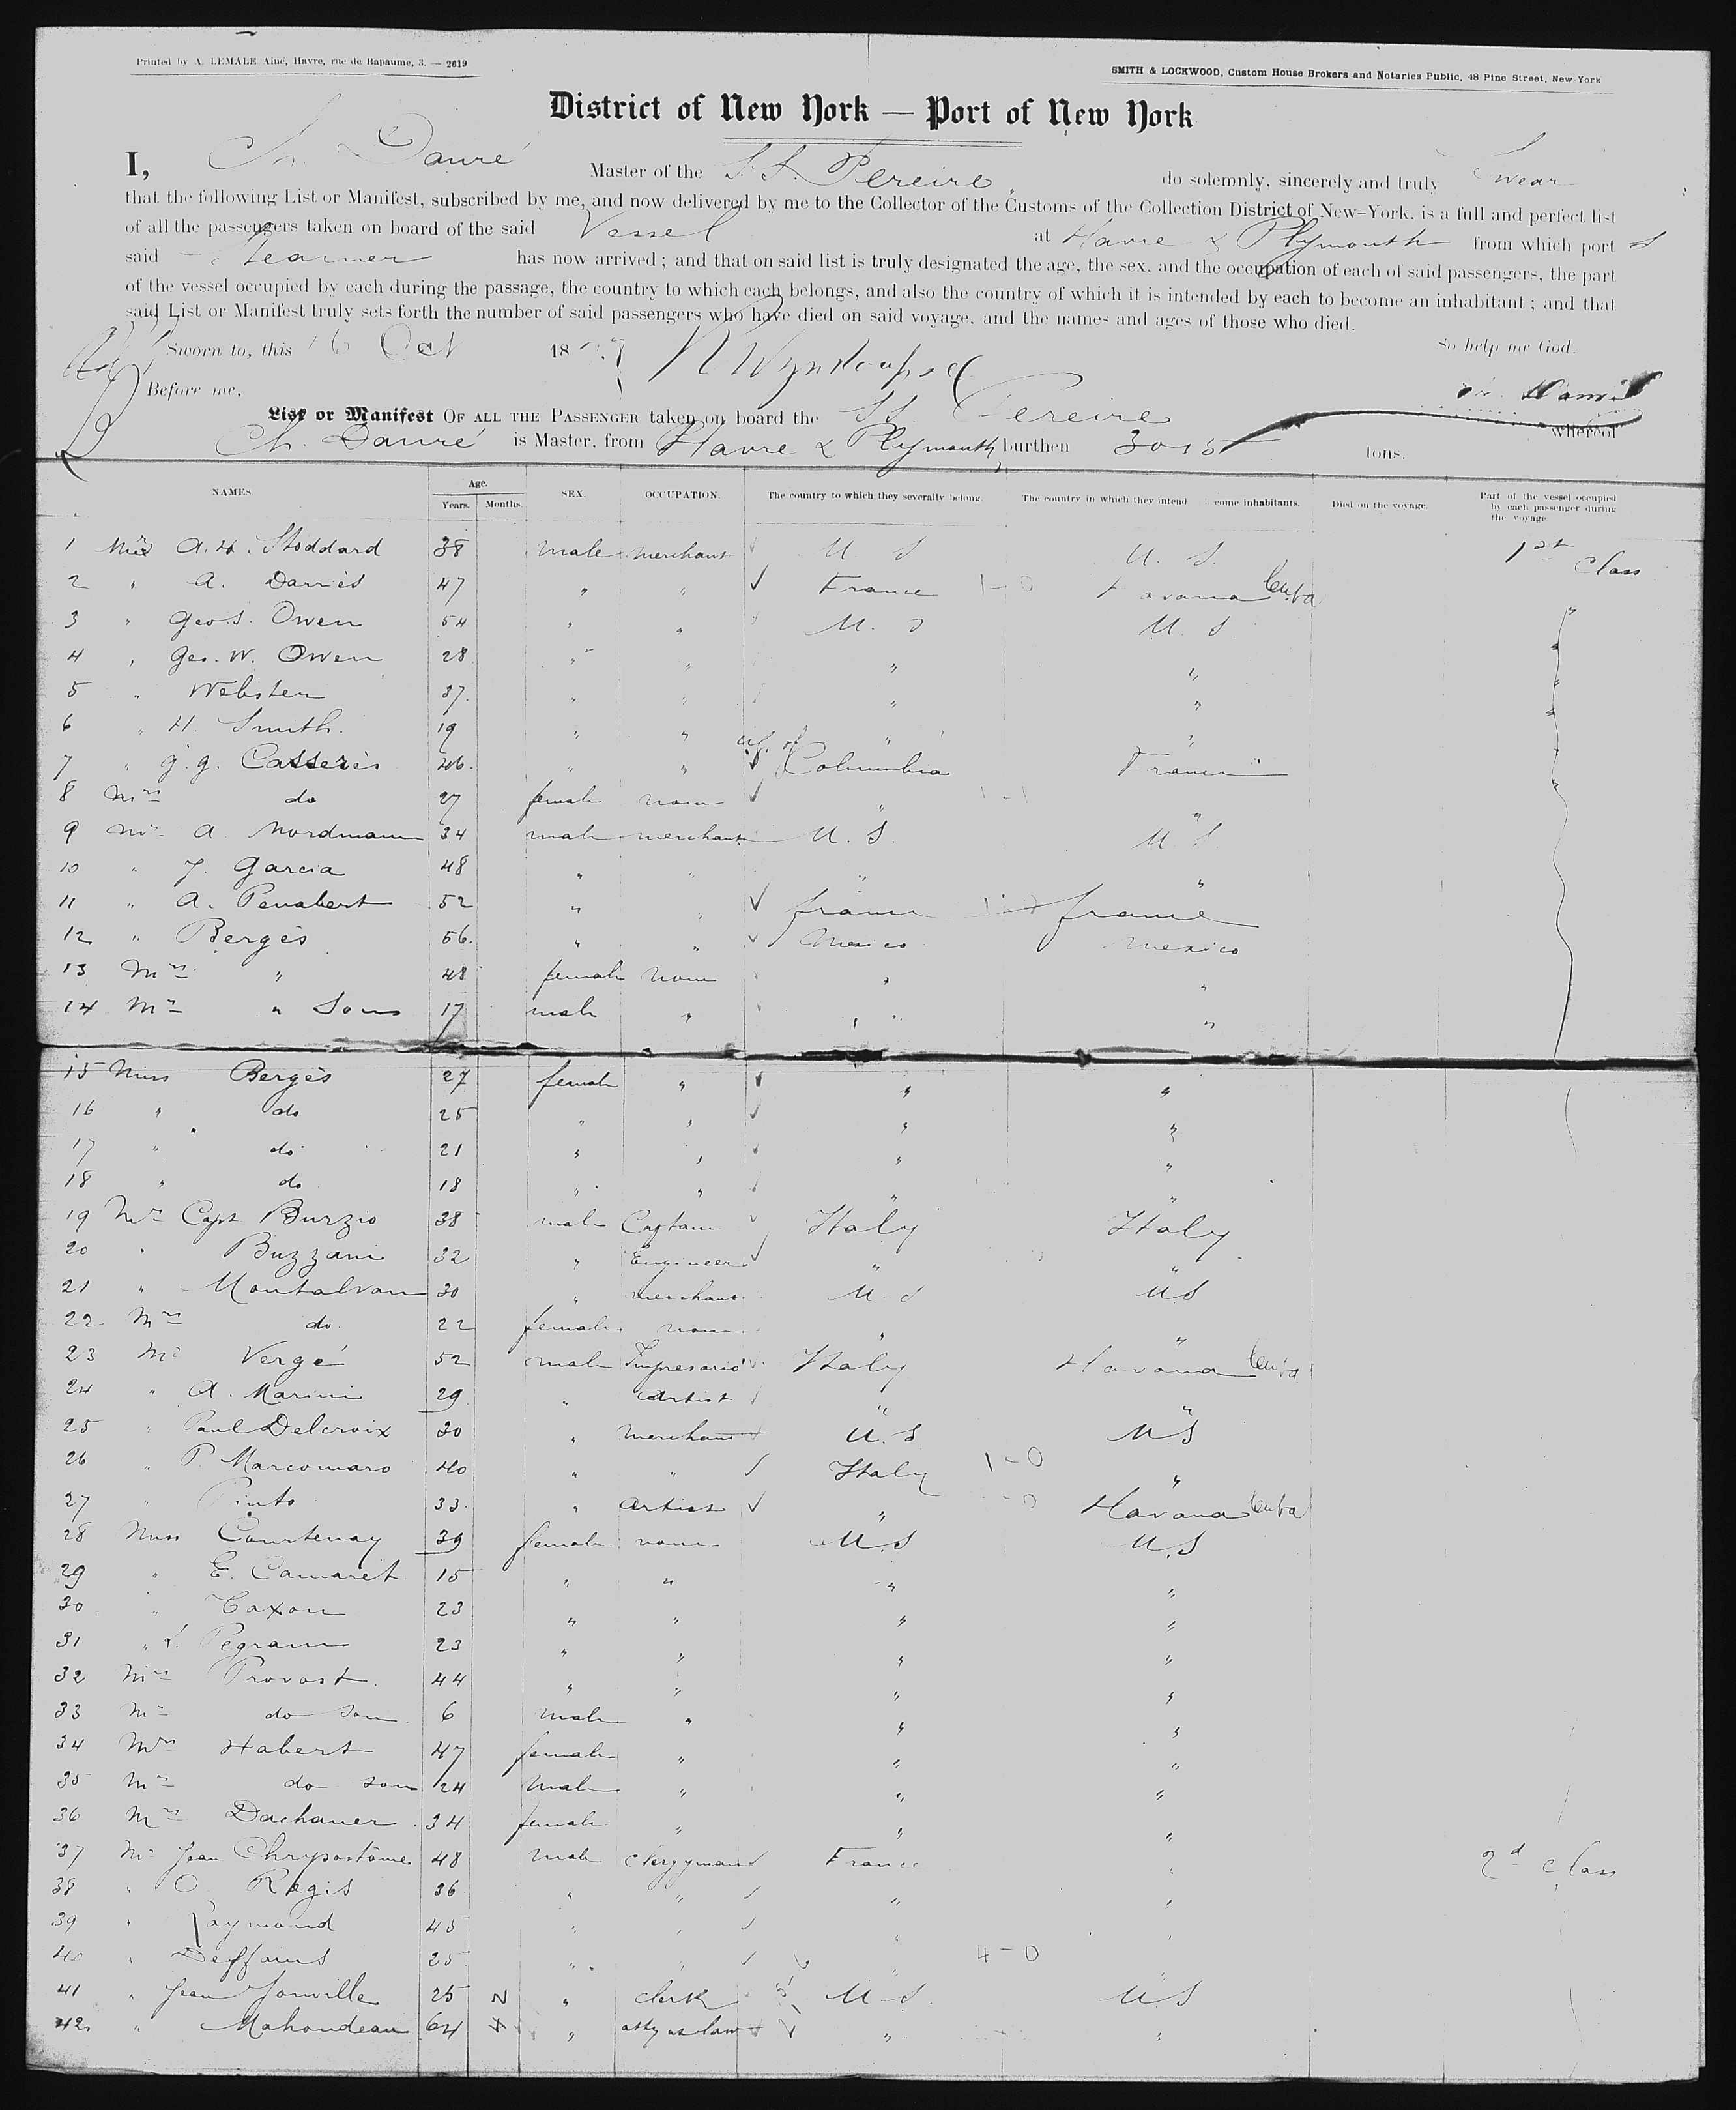 Printed by A. LEMALE Aîné, Havre, rue de Bapaume, 3. — 2619
SMITH & LOCKWOOD, Custom House Brokers and Notaries Public, 48 Pine Street, New-York
District of New York — Port of New York
I, Ch. Dauré Master of the S. S. Pereire, do solemnly, sincerely and truly Swear
that the following List or Manifest, subscribed by me, and now delivered by me to the Collector of the Customs of the Collection District of New-York, is a full and perfect list
of all the passengers taken on board of the said Vessel at Havre & Plymouth from which port s
said Steamer has now arrived; and that on said list is truly designated the age, the sex, and the occupation of each of said passengers, the part
of the vessel occupied by each during the passage, the country to which each belongs, and also the country of which it is intended by each to become an inhabitant; and that
said List or Manifest truly sets forth the number of said passengers who have died on said voyage, and the names and ages of those who died.
Sworn to, this 6 Oct 18 So help me God.
Before me,
List or Manifest OF ALL THE PASSENGER taken on board the SS. Pereire whereof
Ch. Dauré is Master, from Havre & Plymouth burthen 3015 tons.
NAMES. Age. Years. Months. SEX. OCCUPATION. The country to which they severally belong. The country in which they intend come inhabitants. Died on the voyage. Part of the vessel occupied by each passenger during the voyage.
1 A. H. Stoddard 38 male merchant U S U. S. 1st Class
2 " A. Dannés 47 " " France Havana Cuba
3 " Geo. S. Owen 54 " " U. S U. S
4 " Geo. W. Owen 28 " " " "
5 " Webster 37 " " " "
6 " H. Smith. 19 " " " "
7 " J. G. Casserès 46 " " U.S. of Columbia France
8 Mrs do 27 female none " "
9 Mr. A Nordmann 34 male merchant U. S. U S
10 " J. Garcia 48 " " " "
11 " A. Penabert 52 " " France France
12 " Bergès 56 " " Mexico Mexico
13 Mrs " 48 female none " "
14 Mr " Son 17 male " " "
15 Miss Bergès 27 female " " "
16 " do 25 " " " "
17 " do 21 " " " "
18 " do 18 " " " "
19 Mr Capt Burzio 38 male Captain Italy Italy
20 " Buzzani 32 " Engineer " "
21 " Montalvan 30 " merchant U. S US
22 Mrs do 22 female none " "
23 Mr Vergé 52 male Impresario Italy Havana Cuba
24 " A. Marini 29 " Artist " "
25 " Paul Delcroix 30 " Merchant U. S US
26 " P. Marcomaro 40 " " Italy 1-0 "
27 " Pinto 33 " Artist " Havana Cuba
28 Miss Courtenay 39 female none U.S U.S
29 " E. Camaret 15 " " " "
30 " Caxon 23 " " " "
31 " L. Pegram 23 " " " "
32 Mrs Provost 44 " " " "
33 Mr do son 6 male " " "
34 Mrs Habert 47 female " " "
35 Mr do son 24 male " " "
36 Mrs Dachauer 34 female " " "
37 Mr Jean Chrysostôme 48 male clergyman France " 2d Class
38 " O Régis 36 " " " "
39 " Raymond 45 " " " "
40 " Deffains 25 " " " 4-0 "
41 " Jean Jonville 25 N " clerk U S US
42 " Mahoudeau 64 " atty at law " "